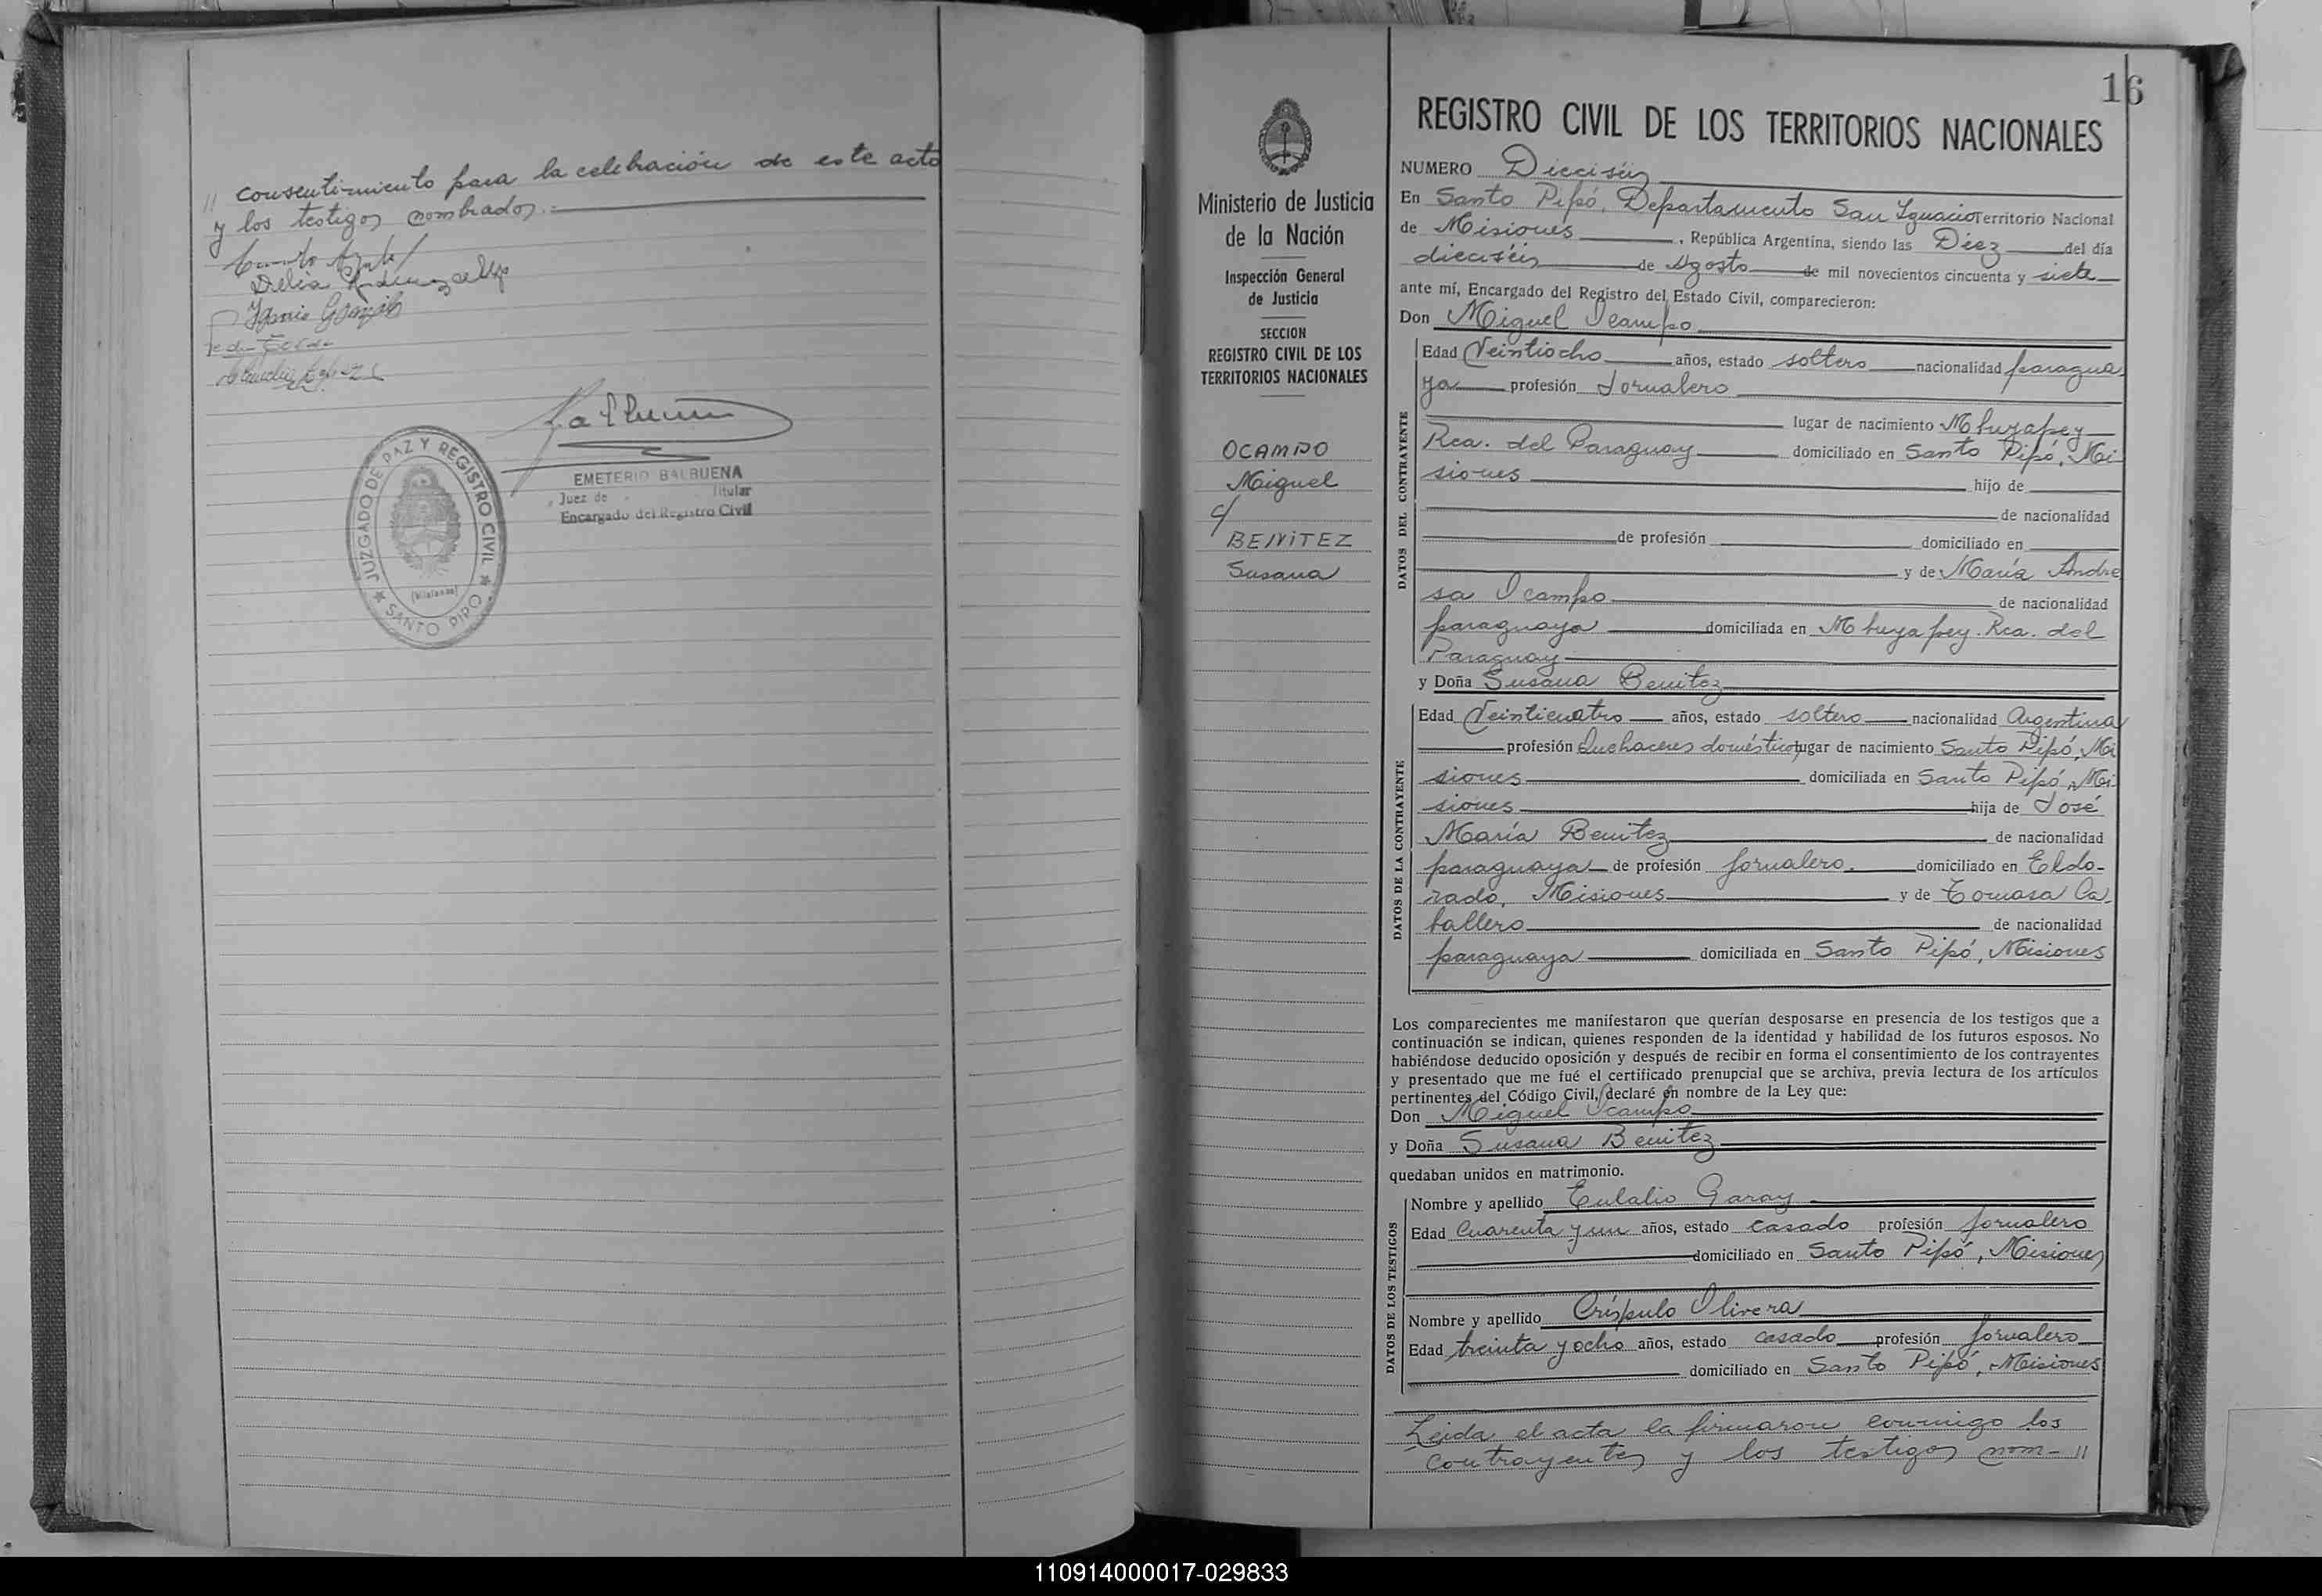 // consentimiento para la celebración de este acto
y los testigos nombrados.
Delia
JUZGADO DE PAZ Y REGISTRO CIVIL
(Misiones)
★ SANTO PIPO ★
EMETERIO BALBUENA
Juez de Titular
Encargado del Registro Civil
Ministerio de Justicia
de la Nación
Inspección General
de Justicia
SECCION
REGISTRO CIVIL DE LOS
TERRITORIOS NACIONALES
OCAMPO
Miguel
c/
BENITEZ
Susana
16
REGISTRO CIVIL DE LOS TERRITORIOS NACIONALES
NUMERO Dieciséis
En Santo Pipó, Departamento San Ignacio Territorio Nacional
de Misiones, República Argentina, siendo las Diez del día
dieciséis de Agosto de mil novecientos cincuenta y siete
ante mí, Encargado del Registro del Estado Civil, comparecieron:
Don Miguel Ocampo
DATOS DEL CONTRAYENTE
Edad Veintiocho años, estado soltero nacionalidad paragua
ya profesión Jornalero
lugar de nacimiento Mbuyapey
Rca. del Paraguay domiciliado en Santo Pipó, Mi
siones hijo de
de nacionalidad
de profesión domiciliado en
y de María Andre
sa Ocampo de nacionalidad
paraguaya domiciliada en Mbuyapey. Rca. del
Paraguay
y Doña Susana Benitez
DATOS DE LA CONTRAYENTE
Edad Veinticuatro años, estado soltero nacionalidad Argentina
profesión Quehaceres domésticos lugar de nacimiento Santo Pipó, Mi
siones domiciliada en Santo Pipó, Mi
siones hija de José
María Benitez de nacionalidad
paraguaya de profesión jornalero. domiciliado en Eldo-
rado, Misiones y de Tomasa Ca
ballero de nacionalidad
paraguaya domiciliada en Santo Pipó, Misiones
Los comparecientes me manifestaron que querían desposarse en presencia de los testigos que a
continuación se indican, quienes responden de la identidad y habilidad de los futuros esposos. No
habiéndose deducido oposición y después de recibir en forma el consentimiento de los contrayentes
y presentado que me fué el certificado prenupcial que se archiva, previa lectura de los artículos
pertinentes del Código Civil, declaré en nombre de la Ley que:
Don Miguel Ocampo
y Doña Susana Benitez
quedaban unidos en matrimonio.
DATOS DE LOS TESTIGOS
Nombre y apellido Eulalio Garay
Edad Cuarenta y un años, estado casado profesión jornalero
domiciliado en Santo Pipó, Misiones
Nombre y apellido Críspulo Olivera
Edad treinta y ocho años, estado casado profesión jornalero
domiciliado en Santo Pipó, Misiones
Leida el acta la firmaron conmigo los
contrayentes y los testigos nom- //
110914000017-029833